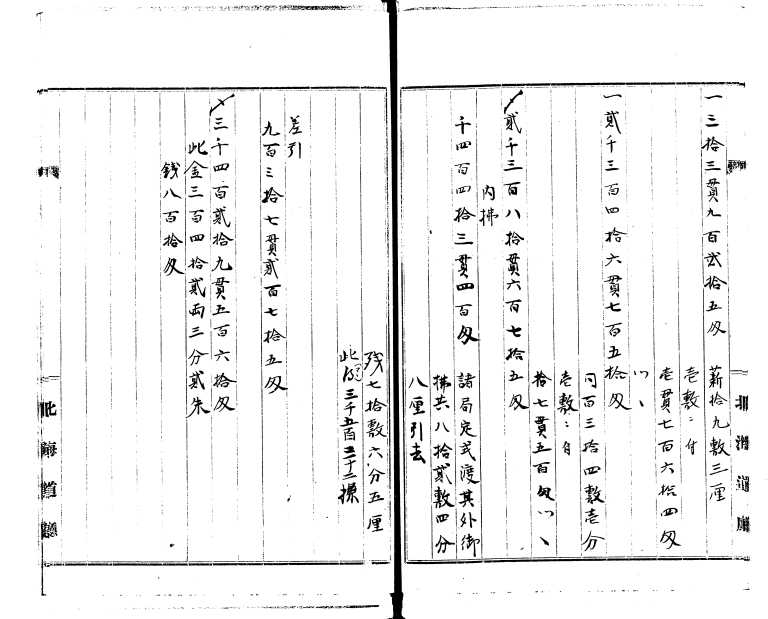 一三拾三貫九百弐拾五匁
薪拾九敷三厘
壱敷ニ付
壱貫七百六拾四匁
ツヽ
一貳千三百四拾六貫七百五拾匁
同百三拾四敷壱分
壱敷ニ付
拾七貫五百匁ツヽ
〆貳千三百八拾貫六百七拾五匁
内拂
千四百四拾三貫四百匁
諸局定式渡其外御
拂共八拾貳敷四分
八厘引去
残七拾敷六分五厘
此
三千五百三十二
差引
九百三拾七貫貳百七拾五匁
〆三千四百貳拾九貫五百六拾匁
此金三百四拾貳両三分貳朱
銭八百拾匁
北海道廳
北海道廳